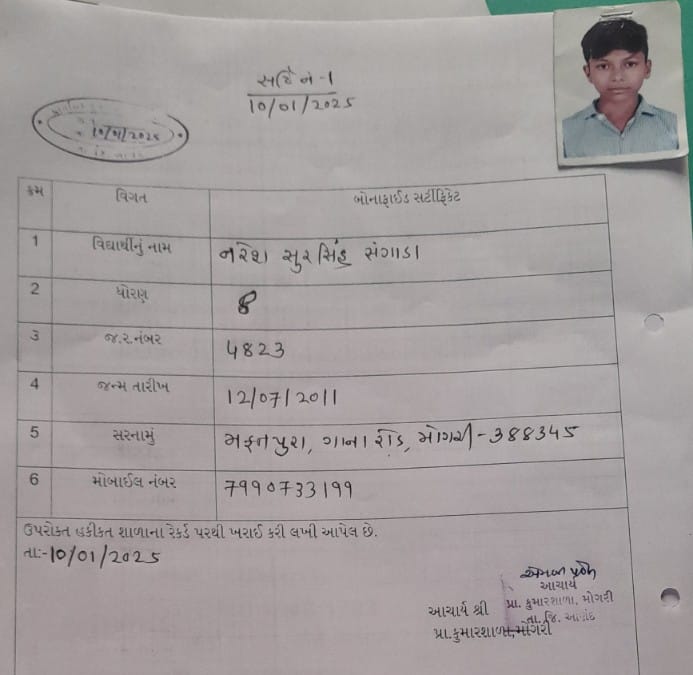 સર્ટિ નં - 1
10/01/2025
10/01/2025
ક્રમ વિગત બોનાફાઈડ સર્ટીફિકેટ
1 વિદ્યાર્થીનું નામ નરેશ સુરસિંહ સંગાડા
2 ધોરણ 8
3 જ.ર.નંબર 4823
4 જન્મ તારીખ 12/07/2011
5 સરનામું ગાના રોડ, મોગરી - 388345
6 મોબાઈલ નંબર 7990733199
ઉપરોક્ત હકીકત શાળાના રેકર્ડ પરથી ખરાઈ કરી લખી આપેલ છે.
તાઃ- 10/01/2025
આચાર્ય
પ્રા. કુમારશાળા, મોગરી
તા. જિ. આણંદ
આચાર્ય શ્રી
પ્રા.કુમારશાળા,મોગરી